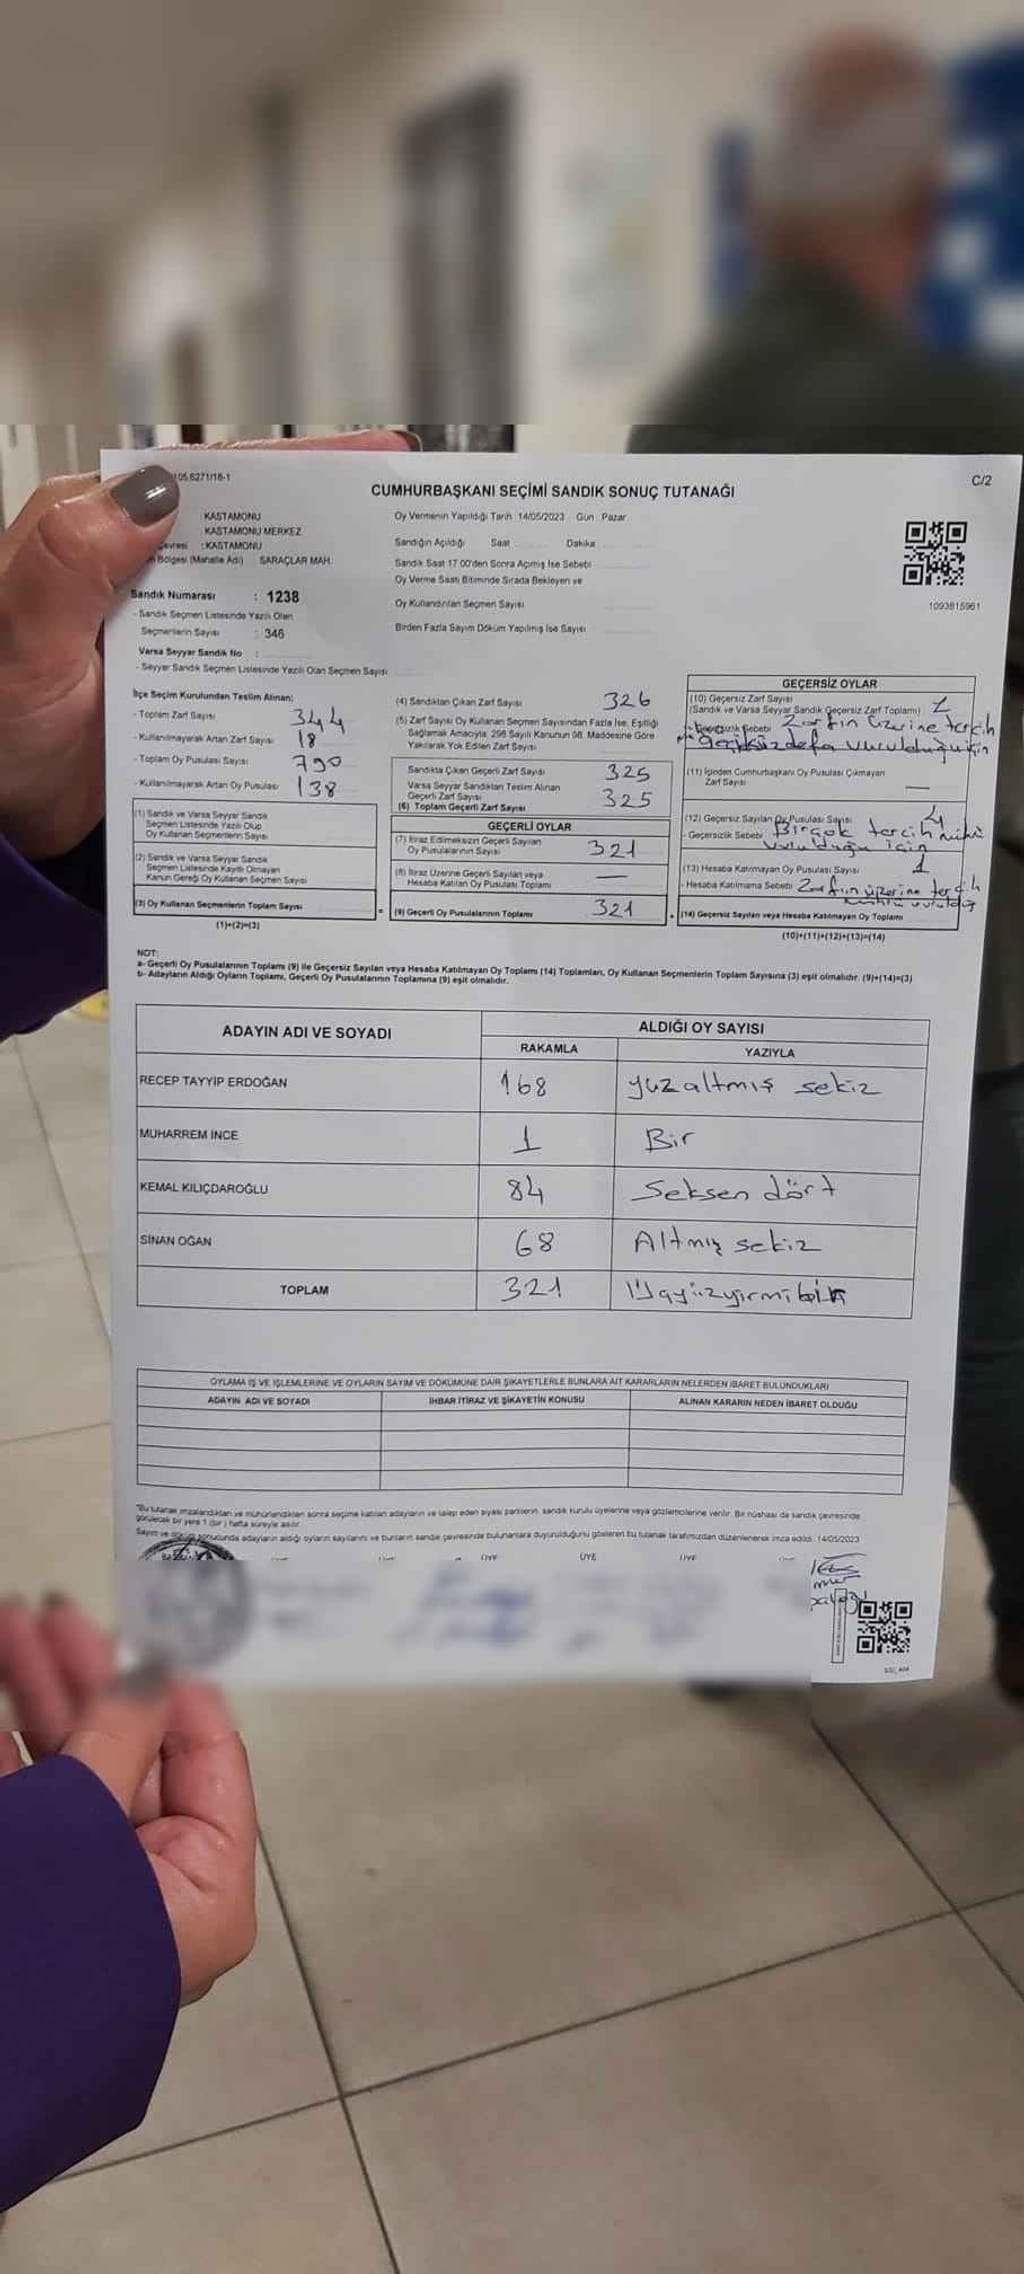 105.6271/18-1
C/2
CUMHURBAŞKANI SEÇİMİ SANDIK SONUÇ TUTANAĞI
: KASTAMONU
: KASTAMONU MERKEZ
Çevresi : KASTAMONU
Bölgesi (Mahalle Adı) SARAÇLAR MAH.
Sandık Numarası : 1238
- Sandık Seçmen Listesinde Yazılı Olan
Seçmenlerin Sayısı : 346
Varsa Seyyar Sandık No :
- Seyyar Sandık Seçmen Listesinde Yazılı Olan Seçmen Sayısı
Oy Vermenin Yapıldığı Tarih: 14/05/2023 Gün : Pazar
Sandığın Açıldığı Saat Dakika
Sandık Saat 17.00'den Sonra Açılmış İse Sebebi
Oy Verme Saati Bitiminde Sırada Bekleyen ve
Oy Kullandırılan Seçmen Sayısı
Birden Fazla Sayım Döküm Yapılmış İse Sayısı
1093815961
İlçe Seçim Kurulundan Teslim Alınan;
- Toplam Zarf Sayısı 344
- Kullanılmayarak Artan Zarf Sayısı 18
- Toplam Oy Pusulası Sayısı 790
- Kullanılmayarak Artan Oy Pusulası 138
(1) Sandık ve Varsa Seyyar Sandık
Seçmen Listesinde Yazılı Olup
Oy Kullanan Seçmenlerin Sayısı
(2) Sandık ve Varsa Seyyar Sandık
Seçmen Listesinde Kayıtlı Olmayan
Kanun Gereği Oy Kullanan Seçmen Sayısı
(3) Oy Kullanan Seçmenlerin Toplam Sayısı =
(1)+(2)=(3)
(4) Sandıktan Çıkan Zarf Sayısı 326
(5) Zarf Sayısı Oy Kullanan Seçmen Sayısından Fazla İse, Eşitliği
Sağlamak Amacıyla, 298 Sayılı Kanunun 98. Maddesine Göre
Yakılarak Yok Edilen Zarf Sayısı
Sandıkta Çıkan Geçerli Zarf Sayısı 325
Varsa Seyyar Sandıktan Teslim Alınan
Geçerli Zarf Sayısı
(6) Toplam Geçerli Zarf Sayısı 325
GEÇERLİ OYLAR
(7) İtiraz Edilmeksizin Geçerli Sayılan
Oy Pusulalarının Sayısı 321
(8) İtiraz Üzerine Geçerli Sayılan veya
Hesaba Katılan Oy Pusulası Toplamı —
(9) Geçerli Oy Pusulalarının Toplamı 321 +
GEÇERSİZ OYLAR
(10) Geçersiz Zarf Sayısı
(Sandık ve Varsa Seyyar Sandık Geçersiz Zarf Toplamı) 1
- Geçersizlik Sebebi Zarfın üzerine tercih
defa vurulduğu için
(11) İçinden Cumhurbaşkanı Oy Pusulası Çıkmayan
Zarf Sayısı —
(12) Geçersiz Sayılan Oy Pusulası Sayısı 4
- Geçersizlik Sebebi Birçok tercih mührü
vurulduğu için
(13) Hesaba Katılmayan Oy Pusulası Sayısı 1
- Hesaba Katılmama Sebebi Zarfın üzerine tercih
mührü vuruldu
(14) Geçersiz Sayılan veya Hesaba Katılmayan Oy Toplamı
(10)+(11)+(12)+(13)=(14)
NOT:
a- Geçerli Oy Pusulalarının Toplamı (9) ile Geçersiz Sayılan veya Hesaba Katılmayan Oy Toplamı (14) Toplamları, Oy Kullanan Seçmenlerin Toplam Sayısına (3) eşit olmalıdır. (9)+(14)=(3)
b- Adayların Aldığı Oyların Toplamı, Geçerli Oy Pusulalarının Toplamına (9) eşit olmalıdır.
ADAYIN ADI VE SOYADI ALDIĞI OY SAYISI
RAKAMLA YAZIYLA
RECEP TAYYİP ERDOĞAN 168 yüzaltmış sekiz
MUHARREM İNCE 1 Bir
KEMAL KILIÇDAROĞLU 84 Seksen dört
SİNAN OĞAN 68 Altmış sekiz
TOPLAM 321 Üçyüzyirmibir
OYLAMA İŞ VE İŞLEMLERİNE VE OYLARIN SAYIM VE DÖKÜMÜNE DAİR ŞİKAYETLERLE BUNLARA AİT KARARLARIN NELERDEN İBARET BULUNDUKLARI
ADAYIN ADI VE SOYADI İHBAR İTİRAZ VE ŞİKAYETİN KONUSU ALINAN KARARIN NEDEN İBARET OLDUĞU
"Bu tutanak imzalandıktan ve mühürlendikten sonra seçime katılan adayların ve talep eden siyasi partilerin, sandık kurulu üyelerine veya gözlemcilerine verilir. Bir nüshası da sandık çevresinde
görülecek bir yere 1 (bir) hafta süreyle asılır.
Sayım ve döküm sonucunda adayların aldığı oyların sayılarını ve bunların sandık çevresinde bulunanlara duyurulduğunu gösteren bu tutanak tarafımızdan düzenlenerek imza edildi. 14/05/2023
ÜYE ÜYE ÜYE